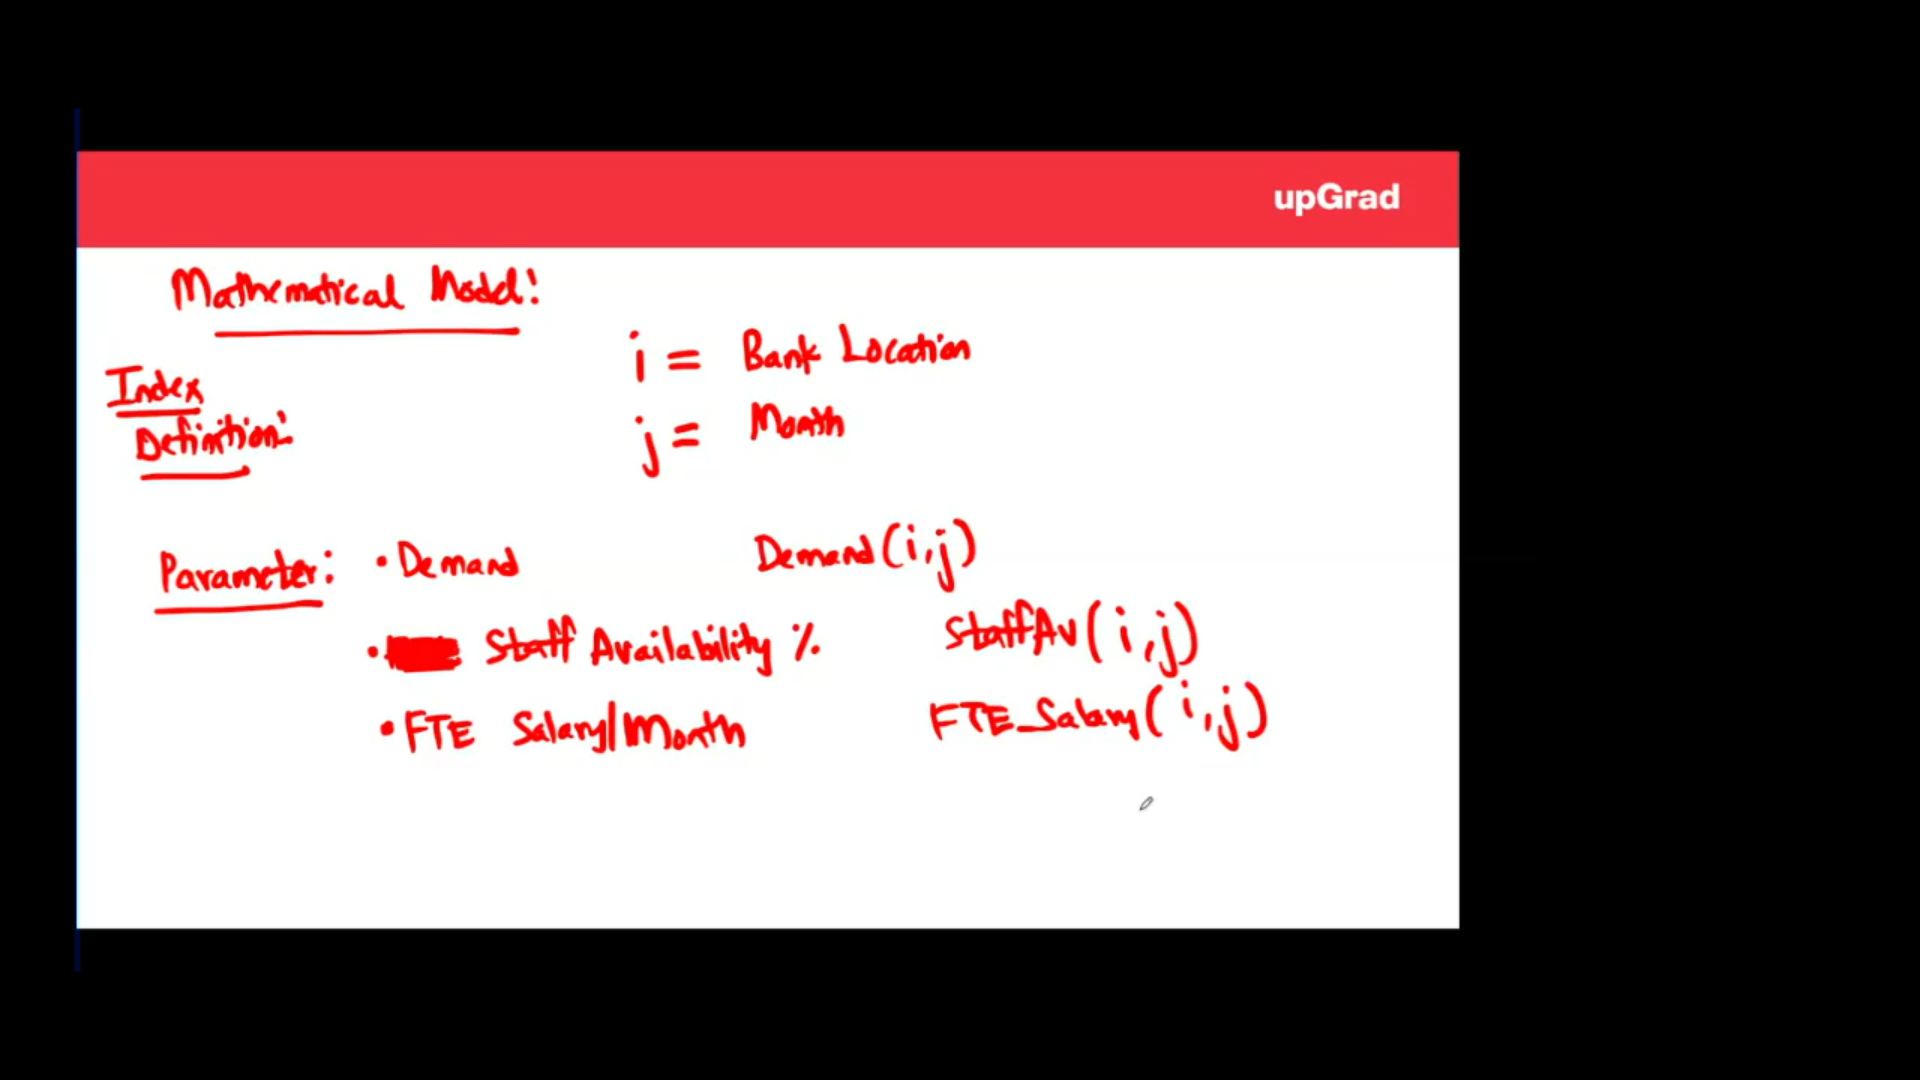 upGrad
Mathematical Model:
i = Bank Location
Index
Definition:
j = Month
Parameter: • Demand Demand(i,j)
• Staff Availability % StaffAv(i,j)
• FTE Salary/Month FTE_Salary(i,j)